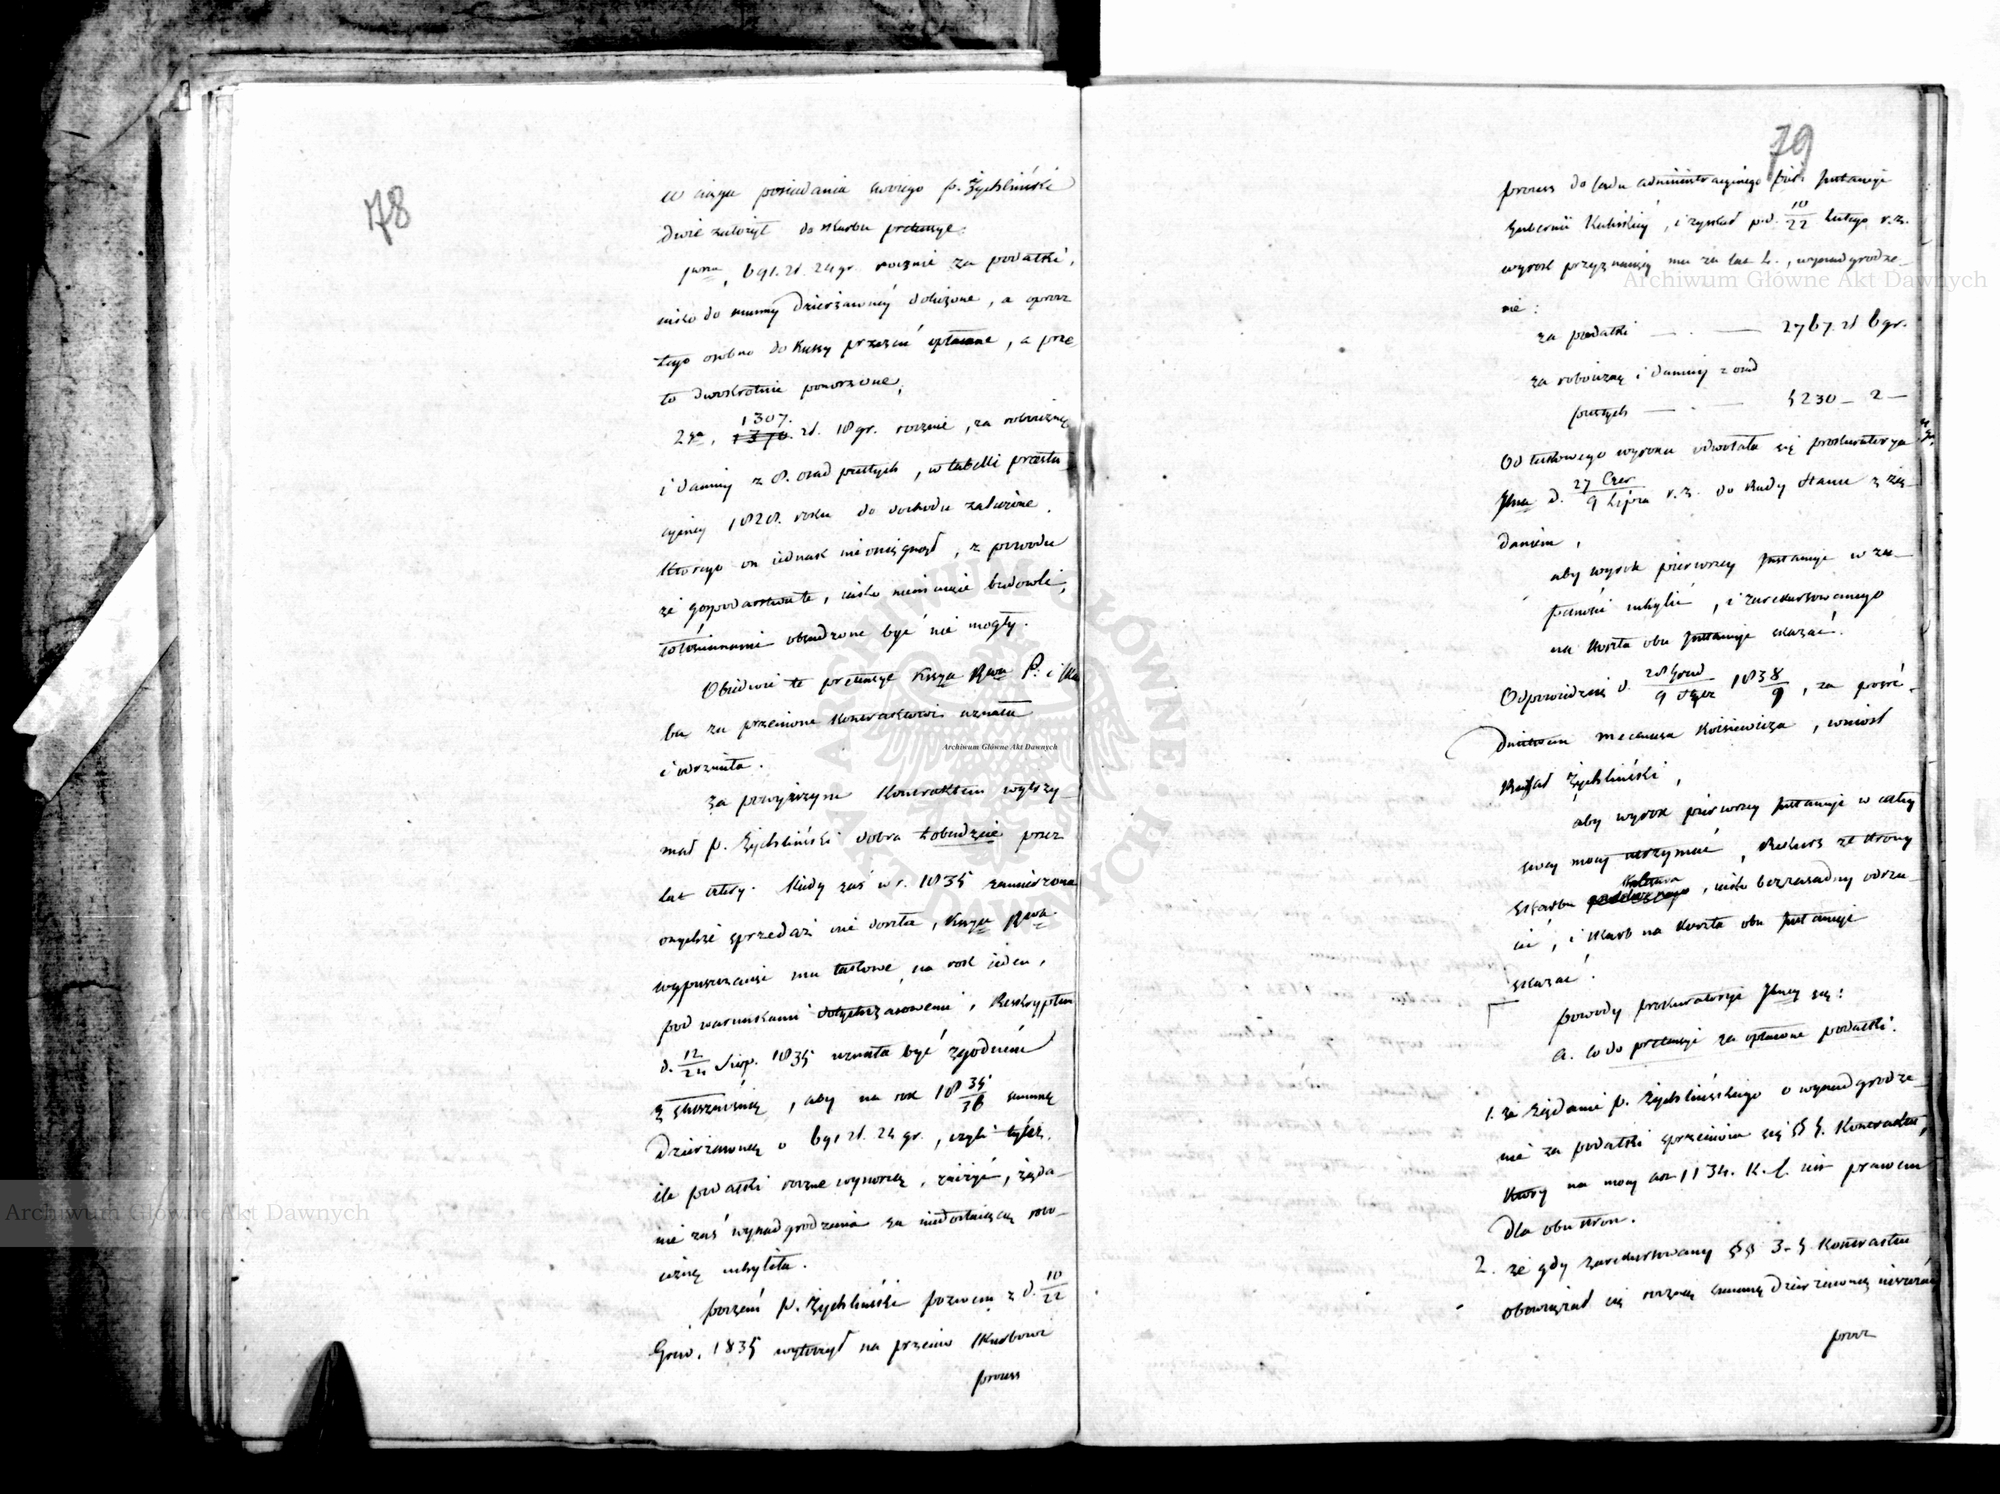 78
w ciągu posiadania swoiego p. Żychliński
dwie założył do skarbu pretensye:
jedna, 691. zł. 24 gr. rocznie za podatki,
iako do summy dzierżawnéy doliczone, a oprócz
tego osobno do Kassy przezeń opłacane, a prze
to dwukrotnie ponoszone;
2ga, 1307. zł. 18 gr. rocznie, za robociznę
i daniny z 8. osad pustych, w tabelli presta
cyinéy 1828. roku do dochodu zaliczone,
którego on iednak nie osiągnął, z powodu
że gospodarstwa te, iako nieмаiące budowli,
włościanami obsadzone być nie mogły.
Obidwie te pretensye Kssya Rwa P. i Ska
bu za przeciwne kontraktowi uznała
i odrzuciła.
Za powyższym Kontraktem wytrzy-
mał p. Żychliński dobra Łobudzice przez
lat cztery. Kiedy zaś w r. 1835 zamierzona
onychże sprzedaż nie doszła, Kssya Rwa
wypuszczaiąc mu takowe na rok ieden,
pod warunkami dotychczasowemi, Reskryptem
d. 12/24 Sierp. 1835 uznała być zgodném
z słusznością, aby na rok 1835/36 summę
dzierżawną o 691 zł. 24 gr., czyli tyle,
ile podatki roczne wynoszą, zniżyć, żąda-
nie zaś wynadgrodzenia za niedostaiącą robo-
ciznę uchyliła.
Poczém p. Żychliński pozwem z d. 10/22
Grud. 1835 wytoczył na przeciw Skarbowi
process
79
process do sądu administracyinego pier. Instancyi
Gubernii Kaliskiéy, i zyskał p. d. 10/22 Lutego r. z.
wyrok przyznaiący mu za lat 4., wynadgrodze-
nie:
za podatki — . — 2767. zł 6 gr.
za robociznę i daniny z osad
pustych — . — 5230 – 2 –
Od takowego wyroku odwołała się prokuratorya
Jlna d. 27 Czer/9 Lipca r. z. do Rady Stanu z żą-
daniem,
aby wyrok pierwszéy Instancyi w zu-
pełności uchylić, i zarekursowanego
na koszta obu Instancyi skazać.
Odpowiedzią d. 28 Grud/9 Stycz 1838/9, za pośre-
dnictwem mecenasa Kosiewicza, wniósł
Rafał Żychliński,
aby wyrok pierwszéy Instancyi w całéy
swéy mocy utrzymać, Rekurs ze strony
Skarbu, iako bezzasadny odrzu-
cić, i Skarb na koszta obu Instancyi
skazać.
Powody prokuratoryi Jlnéy są:
a. Co do pretensyi za opłacone podatki.
1. że żądanie p. Żychlińskiego o wynadgrodze-
nie za podatki sprzeciwia się §§ 5. Kontraktu,
który na mocy art 1134. K. C. iest prawem
dla obu stron.
2. że gdy zarekursowany §§ 3. 5. Kontraktu
obowiązał się roczną summę dzierżawną uiszczać
prócz